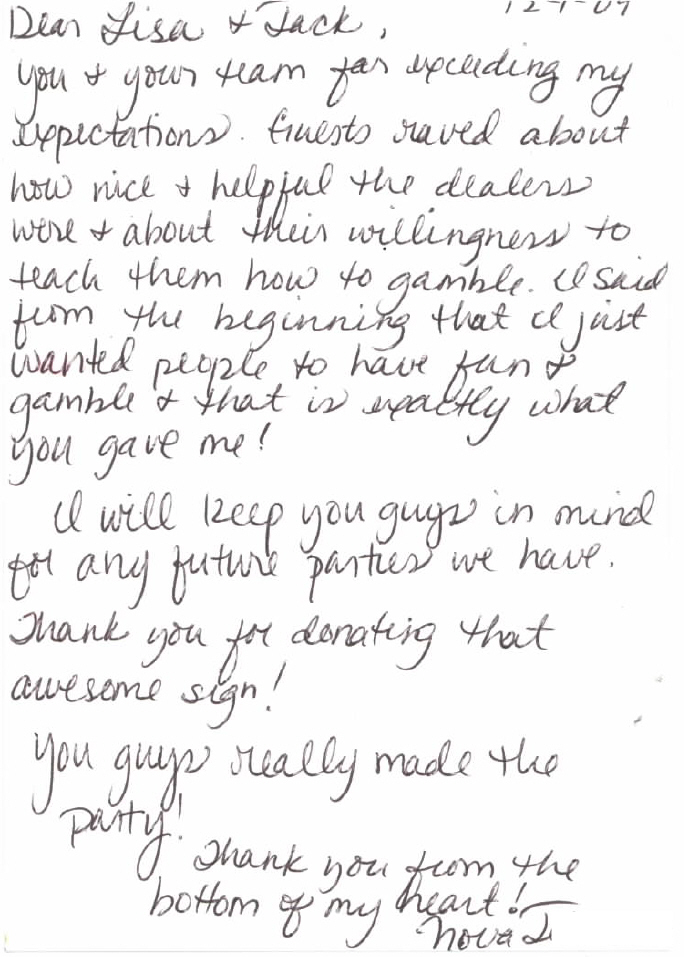 Dear Lisa & Jack,
you & your team far exceeding my
expectations. Guests raved about
how nice & helpful the dealers
were & about their willingness to
teach them how to gamble. I said
from the beginning that I just
wanted people to have fun &
gamble & that is exactly what
you gave me!
I will keep you guys in mind
for any future parties we have.
Thank you for donating that
awesome sign!
You guys really made the
party!
Thank you from the
bottom of my heart!
Nova